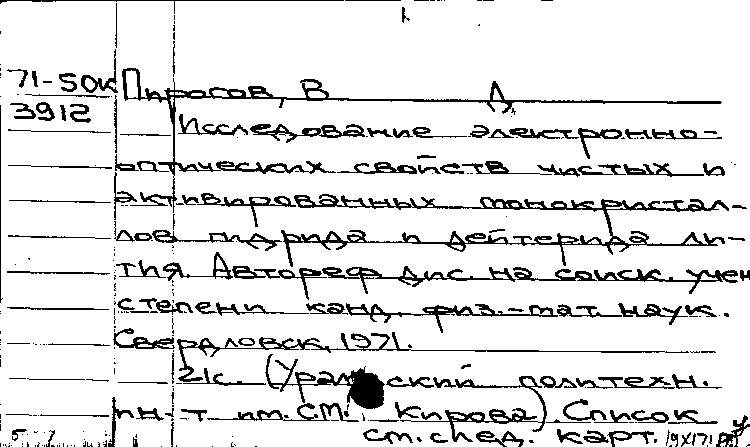 71-50к Пирогов, В Д
3912
Исследование электронно-
оптических свойств чистых и
активированных монокристал-
лов гидрида и дейтерида ли-
тия. Автореф дис. на соиск. учен
степени канд. физ.-мат. наук.
Свердловск, 1971.
21с. (Уральский политехн.
ин-т им. С.М. Кирова). Список
см. след. карт.